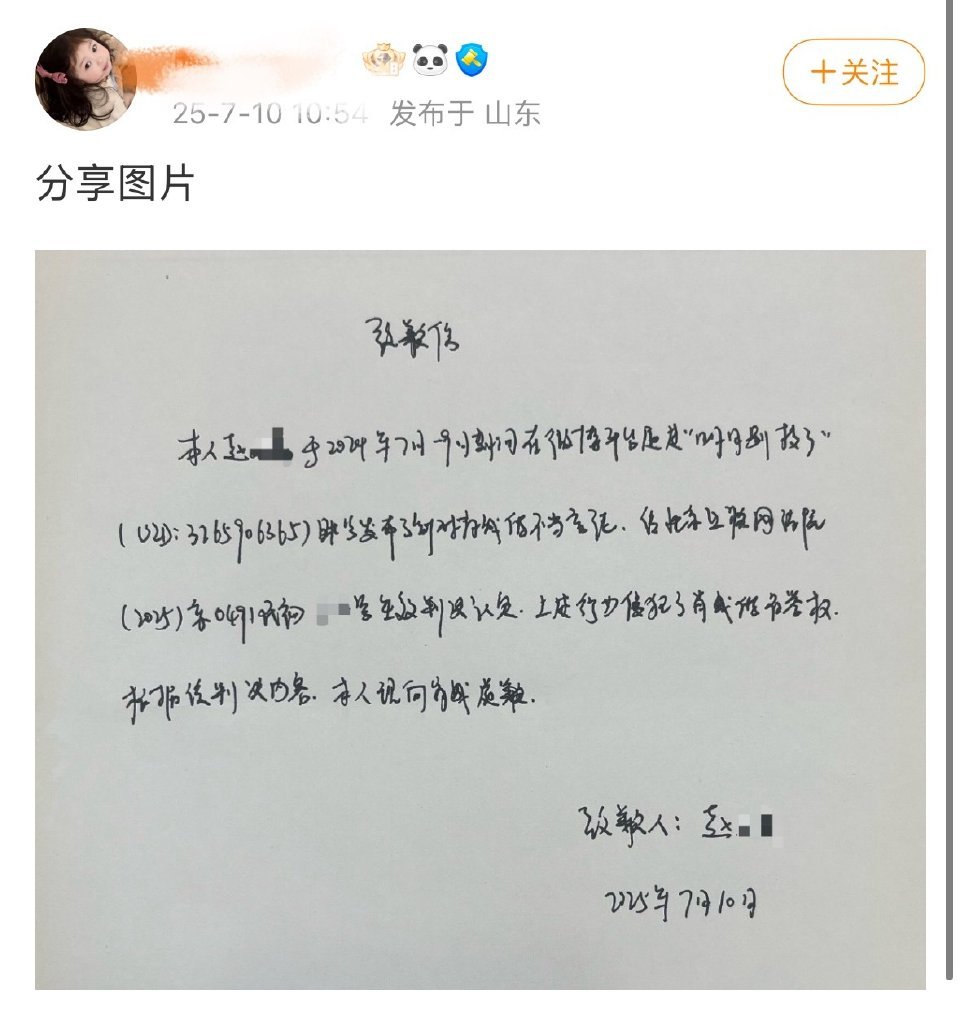 25-7-10 10:54 发布于 山东
+关注
分享图片
致歉信
本人赵 于2024年7月-9月期间在微博平台通过"
(UID: 3265906365)账号发布了针对肖战的不当言论.经北京互联网法院
(2025)京0491民初 号生效判决认定.上述行为侵犯了肖战的名誉权.
根据该判决内容.本人现向肖战道歉.
致歉人: 赵
2025年7月10日